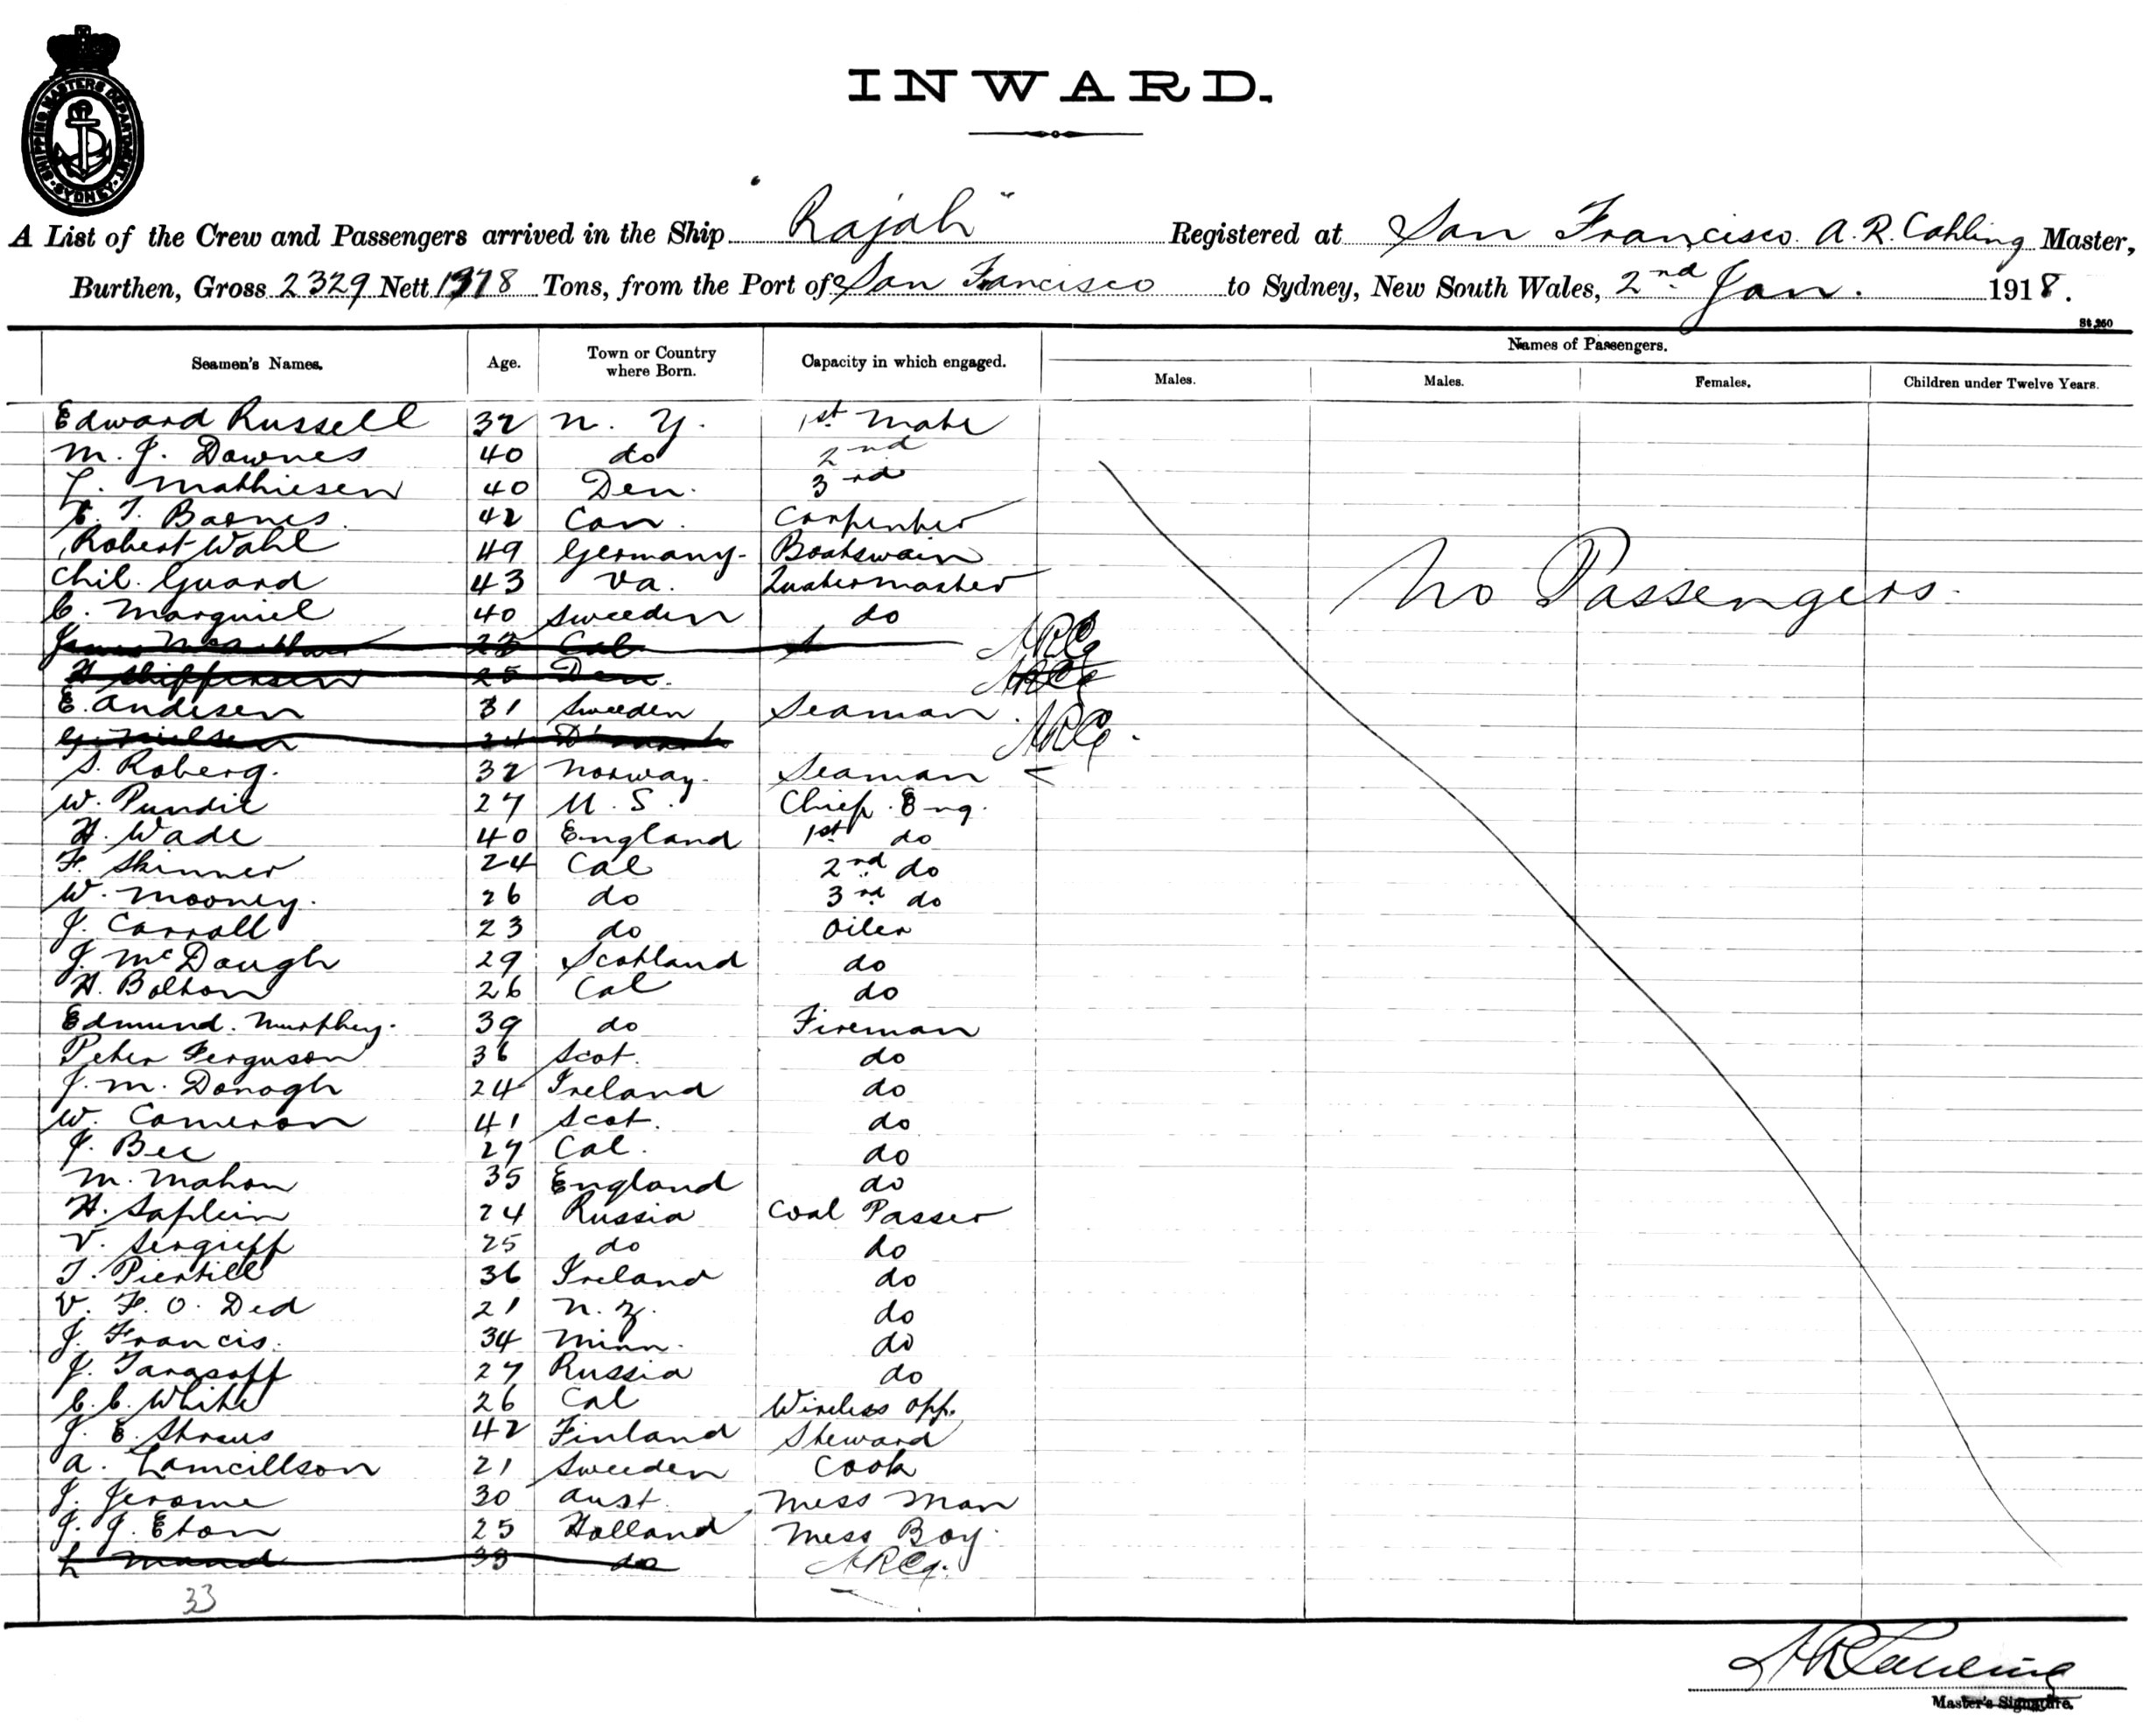 INWARD.
SHIPPING MASTERS DEPARTMENT SYDNEY
A List of the Crew and Passengers arrived in the Ship "Rajah" Registered at San Francisco A. R. Cahling Master,
Burthen, Gross 2329 Nett 1978 Tons, from the Port of San Francisco to Sydney, New South Wales, 2nd Jan. 1918.
Seamen's Names. Age. Town or Country where Born. Capacity in which engaged. Names of Passengers.
Males. Males. Females. Children under Twelve Years.
Edward Russell 32 N. Y. 1st Mate
M. J. Downes 40 do 2nd
L. Mathiesen 40 Den. 3rd
T. Barnes. 42 Can. Carpenter
Robert Wahl 49 Germany. Boatswain
Chil. Guard 43 Va. Quatermaster
No Passengers.
C. Marquiel 40 Sweeden do
James 23 Cal
25 Den.
E. Andisen 31 Sweeden Seaman.
G. Nielsen 24
S. Roberg. 32 Norway. Seaman
W. Pundie 27 U. S. Chief. Eng.
H. Wade 40 England 1st do
F. Skinner 24 Cal 2nd do
W. Mooney. 26 do 3rd do
J. Carroll 23 do Oiler
J. McDaugh 29 Scotland do
H. Bolton 26 Cal do
Edmund. Murphey. 39 do Fireman
Peter Ferguson 36 Scot. do
J. M. Donogh 24 Ireland do
W. Cameron 41 Scot. do
J. Bee 27 Cal. do
M. Mahon 35 England do
H. Saplein 24 Russia Coal Passer
V. Sergieff 25 do do
T. Pierhill 36 Ireland do
V. F. O. Ded 21 N. Z. do
J. Francis. 34 Minn. do
J. Tarasoff 27 Russia do
C. C. White 26 Cal Wireless opp.
J. E. Straus 42 Finland Steward
A. Lamcillson 21 Sweeden Cook
J. Jerome 30 Aust. Mess Man
J. J. Eton 25 Holland Mess Boy.
L Mand 33 do
33
Master's Signature.